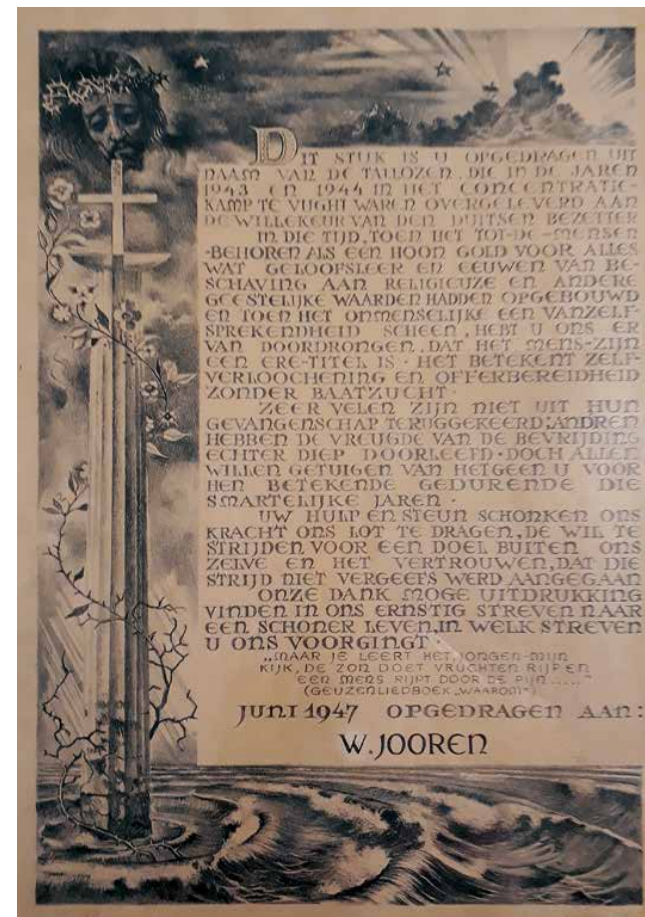 DIT STUK IS U OPGEDRAGEN UIT
NAAM VAN DE TALLOZEN, DIE IN DE JAREN
1943 EN 1944 IN HET CONCENTRATIE-
KAMP TE VUGHT WAREN OVERGELEVERD AAN
DE WILLEKEUR VAN DEN DUITSEN BEZETTER
IN DIE TIJD, TOEN HET TOT-DE-MENSEN
-BEHOREN ALS EEN HOON GOLD VOOR ALLES
WAT GELOOFSLEER EN EEUWEN VAN BE-
SCHAVING AAN RELIGIEUZE EN ANDERE
GEESTELIJKE WAARDEN HADDEN OPGEBOUWD
EN TOEN HET ONMENSELIJKE EEN VANZELF-
SPREKENDHEID SCHEEN, HEBT U ONS ER
VAN DOORDRONGEN, DAT HET MENS-ZIJN
EEN ERE-TITEL IS · HET BETEKENT ZELF-
VERLOOCHENING EN OFFERBEREIDHEID
ZONDER BAATZUCHT ·
ZEER VELEN ZIJN NIET UIT HUN
GEVANGENSCHAP TERUGGEKEERD; ANDREN
HEBBEN DE VREUGDE VAN DE BEVRIJDING
ECHTER DIEP DOORLEEFD · DOCH ALLEN
WILLEN GETUIGEN VAN HETGEEN U VOOR
HEN BETEKENDE GEDURENDE DIE
SMARTELIJKE JAREN ·
UW HULP EN STEUN SCHONKEN ONS
KRACHT ONS LOT TE DRAGEN, DE WIL TE
STRIJDEN VOOR EEN DOEL BUITEN ONS
ZELVE EN HET VERTROUWEN, DAT DIE
STRIJD NIET VERGEEFS WERD AANGEGAAN
ONZE DANK MOGE UITDRUKKING
VINDEN IN ONS ERNSTIG STREVEN NAAR
EEN SCHONER LEVEN, IN WELK STREVEN
U ONS VOORGINGT ·
„MAAR JE LEERT HET JONGEN-MIJN
KIJK, DE ZON DOET VRUCHTEN RIJPEN
EEN MENS RIJPT DOOR DE PIJN....."
(GEUZENLIEDBOEK „WAAROM")
JUNI 1947 OPGEDRAGEN AAN:
W. JOOREN